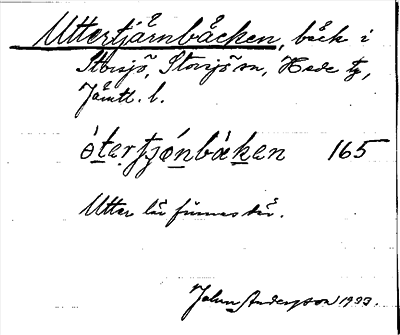 Uttertjärnbäcken, bäck i
Storsjö, Storsjö sn, Hede tg,
Jämtl. l.
ótertjǿnbäken 165
Utter lär finnas där.
Johan Andersson 1933.